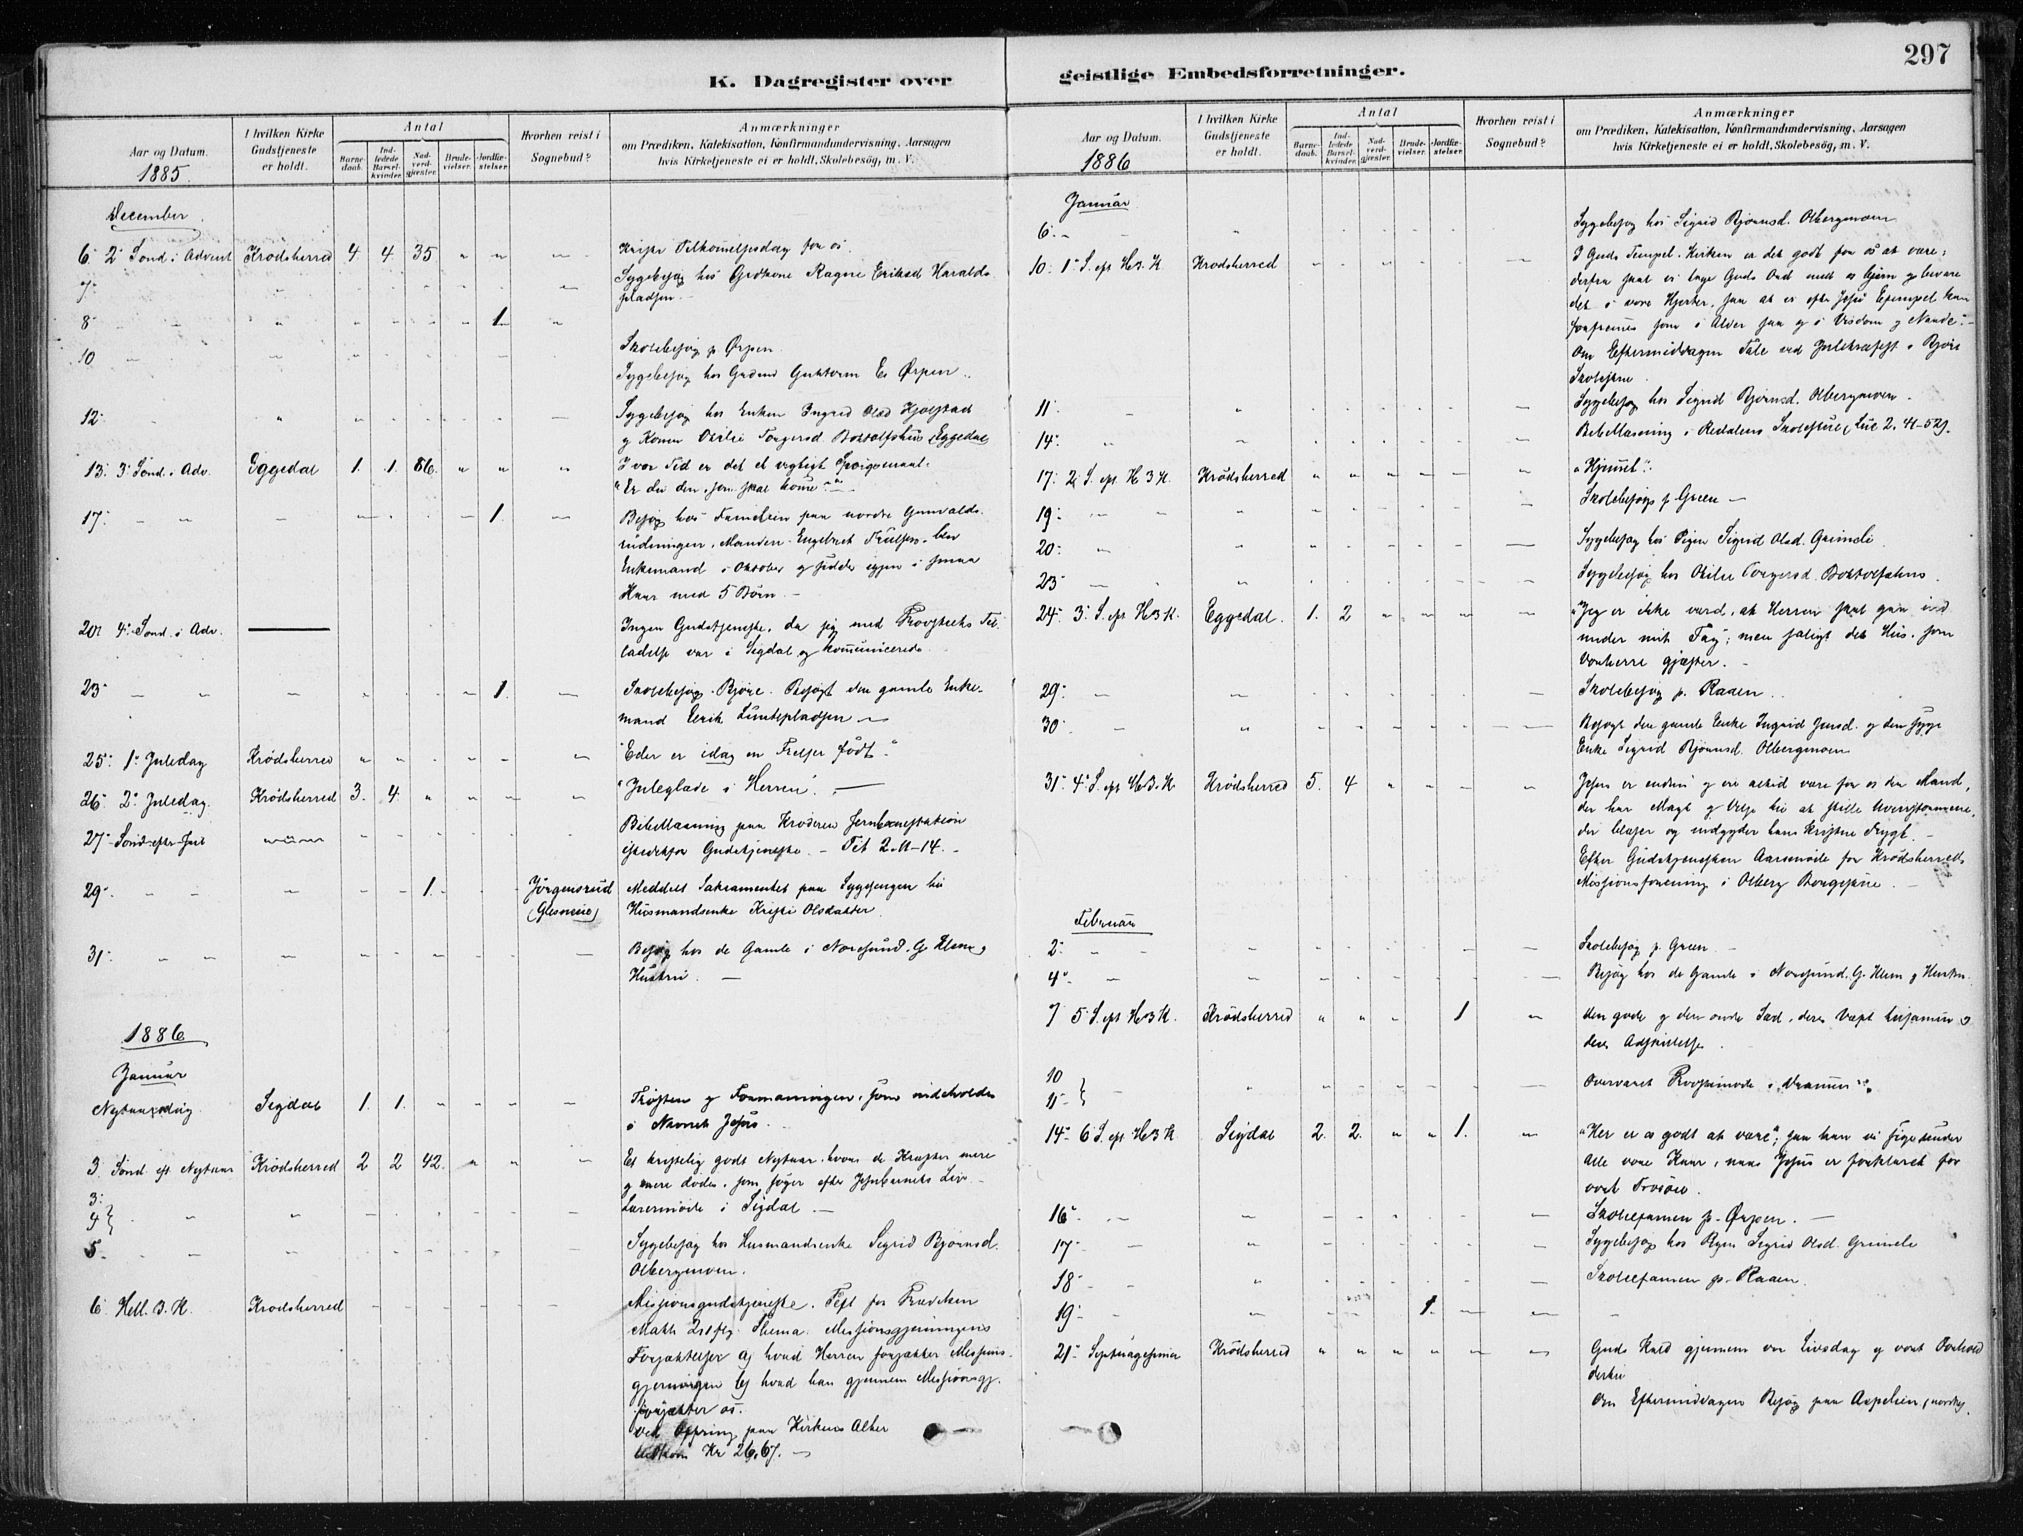 297
K. Dagregister over
geistlige Embedsforretninger.
Aar og Datum.
1885.
I hvilken Kirke Gudstjeneste er holdt.
Antal
Barnedaab.
Indledede Barselkvinder.
Nadverdgjæster.
Brudevielser.
Jordfæstelser.
Hvorhen reist i Sognebud?
Anmærkninger
om Prædiken, Katekisation, Konfirmandundervisning, Aarsagen
hvis Kirketjeneste ei er holdt, Skolebesøg, m. V.
December
6. 2. Sønd. i Advent Krødsherred 4. 4. 35. " " — Kristi Tilkommelsesdag for os
7. Sygebesøg hos Grdkone Ragne Eriksd Haralds-
pladsen.
8. 1.
10 Skolebesøg p. Ørpen
Sygebesøg hos
12. Sygebesøg hos Enken Ingrid Olsd
g Konen Torgersd. Eggedal
13. 3. Sønd. i Adv. Eggedal 1. 1. 86. " " " I vor Tid er det et vigtigt Spørgsmaal:
"Er du den, som skal komme?"
17. 1. Besøg hos Familien paa nordre Gunvalds-
rudningen. Manden Engebret blev
Enkemand i Oktober g sidder igjen i smaa
Kaar med 5 Børn. —
20. 4. Sønd. i Adv. — Ingen Gudstjeneste, da jeg med Provstiets Til-
ladelse var i Sigdal og kommunicerede.
23. 1. Skolebesøg. Bjøre. Besøgt den gamle Enke-
mand Eerik Luntepladsen
25. 1. Juledag Krødsherred " " "Eder er idag en Frelser født"
26. 2. Juledag. Krødsherred 3. 4. " "Juleglæde i Herren". —
27. Sønd. efter Jul Bibellæsning paa Krøderen Jernbanestation
istedetfor Gudstjeneste. — Tit 2. 11-14. —
29. 1. Jørgensrud Meddelt Sakramentet paa Sygesengen til
(Glesneie) Husmandsenke Kristi Olsdatter
31. Besøg hos de Gamle i Noresund. G. Klem g
Hustru. —
1886
Januar
Nytaarsdag. Sigdal 1. 1. Trøsten g Formaningen, som indeholdes
i Navnet Jesus.
3. Sønd. eft. Nytaar Krødsherred 2 2 42. Et kristelig godt Nytaar, hvori de Kræfter mere
g mere dødes, som søger efter Jesubarnets Liv.
3. 4. Lærermøde i Sigdal. —
5. Sygebesøg hos Husmandsenke Sigrid Bjørnsd.
Olbergmoen.
6. Hell. 3. K. Krødsherred Missionsgudstjeneste. Text for Prædiken
Math 2 1 flg. Thema. Missionsgjerningens
Forjættelser a) hvad Herren forjætter Missions-
gjerningen b) hvad han gjennem Missionsgj.
forjætter os.
Ved Offring paa Kirkens Alter
indkom Kr 26,67. —
Aar og Datum.
1886
I hvilken Kirke Gudstjeneste er holdt.
Antal
Barnedaab.
Indledede Barselkvinder.
Nadverdgjæster.
Brudevielser.
Jordfæstelser.
Hvorhen reist i Sognebud?
Anmærkninger
om Prædiken, Katekisation, Konfirmandundervisning, Aarsagen
hvis Kirketjeneste ei er holdt, Skolebesøg, m. V.
Januar
6. Sygebesøg hos Sigrid Bjørnsd. Olbergmoen
10. 1. S. ept. H3.K. Krødsherred I Guds Tempel, Kirken er det godt for os at være;
derfra skal vi tage Guds Ord med os hjem g bevare
det i vore Hjerter, saa at vi efter Jesu Exempel kan
forfremmes som i Alder saa g i Visdom g Naade. —
Om Eftermiddagen Tale ved Juletræfest i Bjøre
Skolestue.
11. Sygebesøg hos Sigrid Bjørnsd. Olbergmoen.
14. Bibellæsning i Redalens Skolestue (Luc 2. 41-52).
17. 2. S. ept. H3K. Krødsherred "Hjemmet".
19. Skolebesøg p Green —
20. Sygebesøg hos Pigen Sigrid Olsd. Grimeli
23. Sygebesøg hos Torgersd.
24. 3. S. ept. H3K. Eggedal. 1. 2 "Jeg er ikke værd, at Herren skal gaa ind
under mit Tag"; men saligt det Hus, som
Vorherre gjæster. —
29. Skolebesøg p. Raaen.
30. Besøgt den gamle Enke Ingrid Jensd. g den syge
Enke Sigrid Bjørnsd. Olbergmoen
31. 4. S. ept. H3.K. Krødsherred 5. 4 Jesus er endnu g vil altid være for os den Mand,
der har Magt g Vilje til at stille Uveirsstormene,
der blæser og indgyder hans Kristne Frygt. —
Efter Gudstjenesten Aarsmøde for Krødsherreds
Missionsforening i Olberg Borgestue. —
Februar
2. Skolebesøg p. Green —
4. Besøg hos de Gamle i Noresund. G. Klem g Hustru.
7 5. S. ept. H3K. Krødsherred 1 den gode g den onde Sæd, deres Væxt tilsammen g
deres Adskillelse.
10 11. Overværet Provstimøde i Drammen.
14. 6. S. ept. H3K Sigdal 2. 2. 1. "Her er os godt at være"; saa kan vi sige under
alle vore Kaar, naar Jesus er forklaret for
vort Trosøie.
16. Skoleexamen p. Ørpen. —
17. Sygebesøg hos Pigen Sigrid Olsd. Grimeli
18. Skoleexamen p. Raaen.
19. 1.
21. Septuagesima Krødsherred Guds Kald gjennem vor Livsdag g vort Forhold
dertil
Om Eftermiddagen Besøg paa Aspelien (nordre).